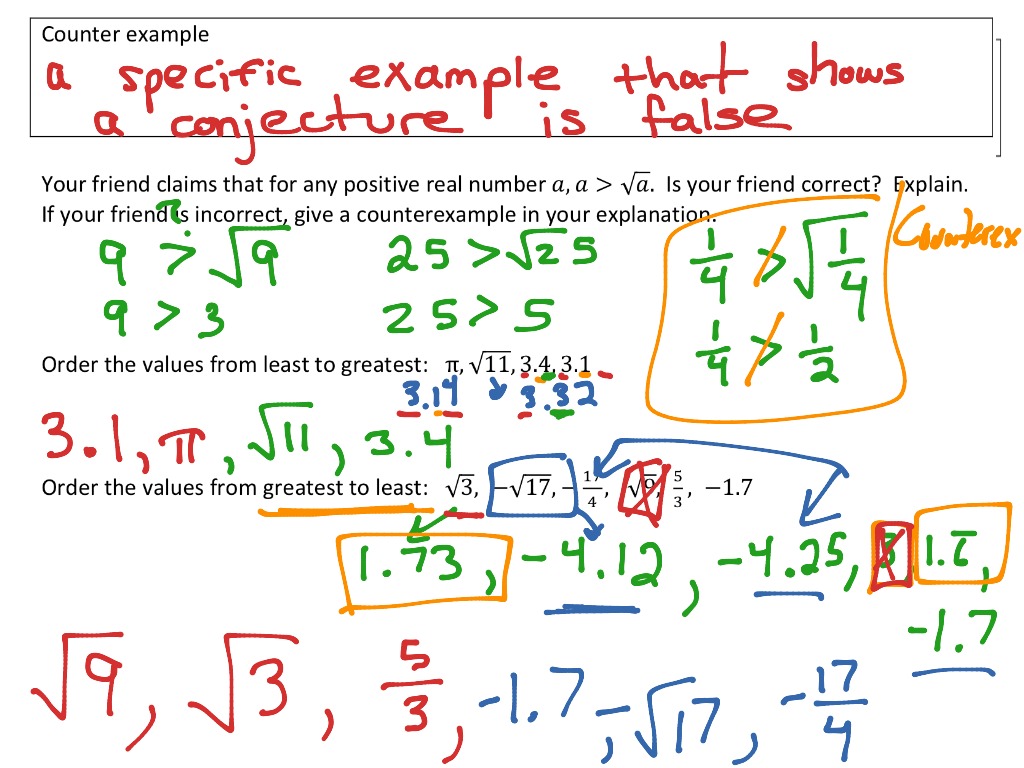 Counter example
a specific example that shows
a conjecture is false
Your friend claims that for any positive real number a, a > √a. Is your friend correct? Explain.
If your friend is incorrect, give a counterexample in your explanation.
Counterex
9 > √9
25 > √25
1/4 > √1/4
9 > 3
25 > 5
1/4 > 1/2
Order the values from least to greatest: π, √11, 3.4, 3.1
3.14 3.32
3.1, π, √11, 3.4
Order the values from greatest to least: √3, −√17, −17/4, √9, 5/3, −1.7
1.73, -4.12, -4.25, 3, 1.6̅,
-1.7
√9, √3, 5/3, -1.7, -√17, -17/4